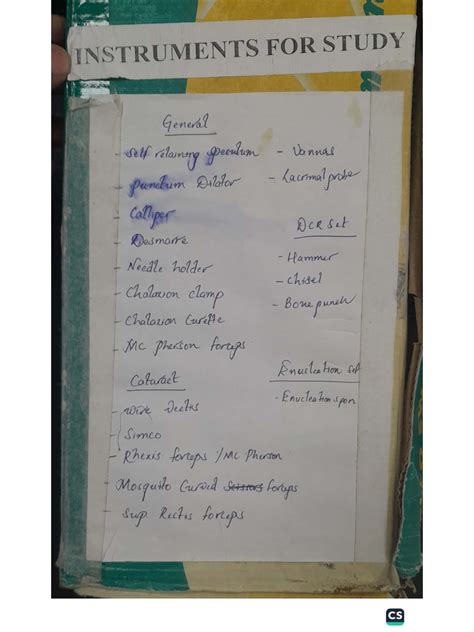 INSTRUMENTS FOR STUDY
General
- Self retaining speculum
- punctum Dilator
- Calliper
- Desmarre
- Needle holder
- Chalazion clamp
- Chalazion Curette
- Mc Pherson forceps
Cataract
- wire Vectis
- Simco
- Rhexis forceps / Mc Pherson
- Mosquito Curved Scissors forceps
- Sup. Rectus forceps
- Vannas
- Lacrimal probe
DCR Set
- Hammer
- chisel
- Bone punch
Enucleation set
- Enucleation spon
CS